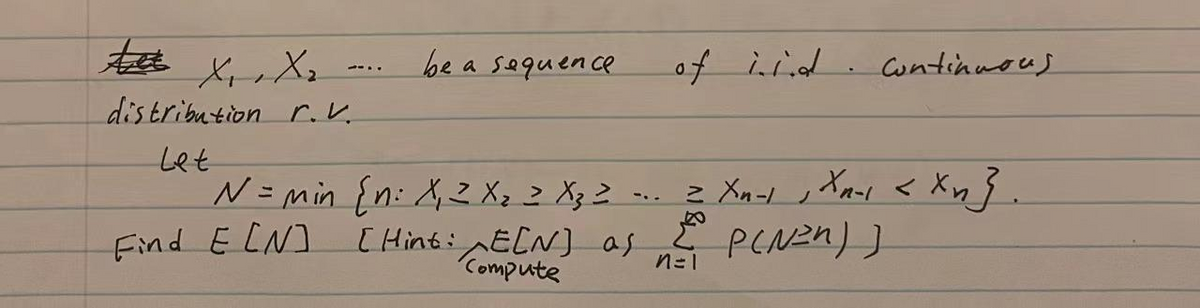 X₁, X₂ .... be a sequence of i.i.d. continuous
distribution r.v.
Let
N = min {n: X₁ ≥ X₂ ≥ X₃ ≥ ... ≥ Xₙ₋₁, Xₙ₋₁ < Xₙ}.
Find E[N] [Hint: compute E[N] as ∑_{n=1}^{∞} P(N≥n) ]